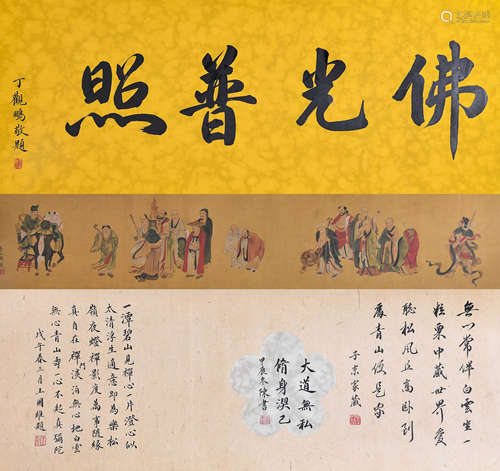 佛光普照
丁觀鵬敬題
常伴白雲坐一
粒粟中藏世界愛
聽松風丘高卧到
處青山便是家
子京家藏
大道無私
脩身潔己
甲辰冬陳書
一潭碧山見禪心一片澄心似
太清浮生適意即為樂松
嶺夜燈禪影度萬事隨緣
真自在禪門浪泊無心地白雲
無心青山壽心不起真彌陀
戊午春三月王國維題